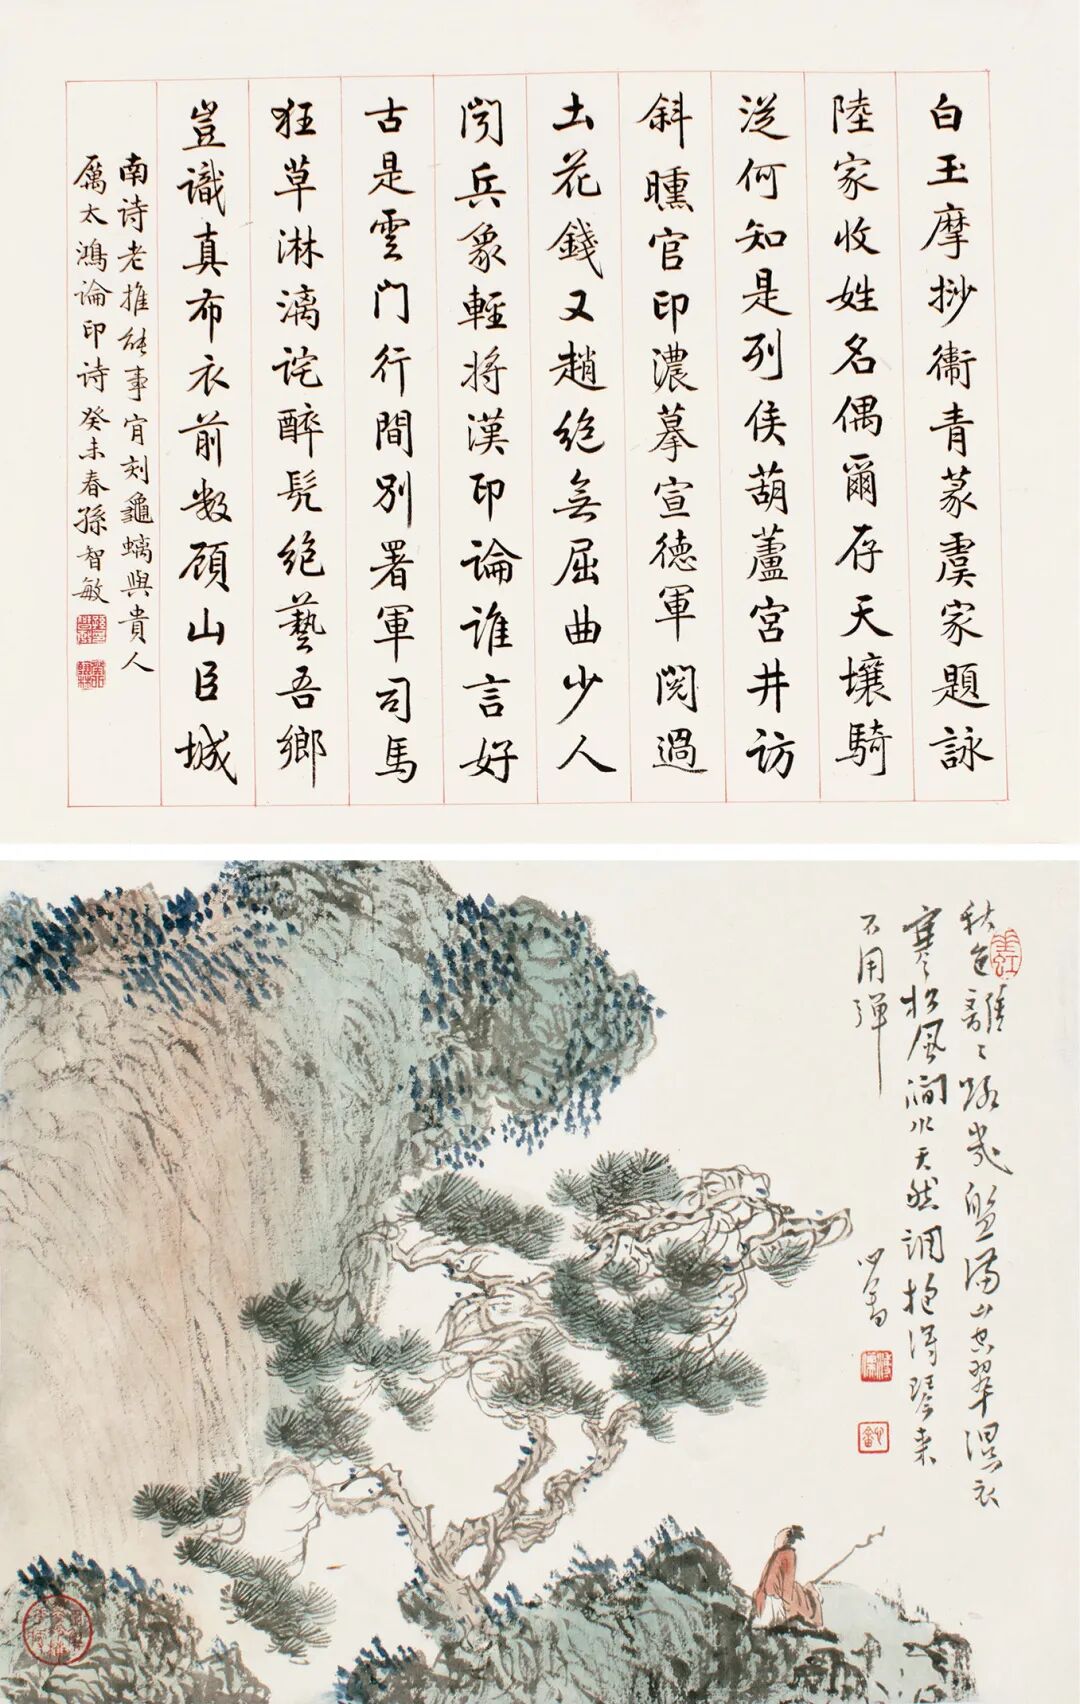 白玉摩挱衞青篆虞家題詠
陸家收姓名偶爾存天壤騎
從何知是列侯葫蘆宮井訪
斜曛官印濃摹宣德軍閱過
土花錢又趙絶無屈曲少人
聞兵象輕將漢印論誰言好
古是雲門行間別署軍司馬
狂草淋漓詫醉髡絶藝吾鄉
豈識真布衣前數顧山臣城
南詩老推能事肯刻龜螭與貴人
厲太鴻論印詩癸未春孫智敏
秋色離〻路幾盤滿山空翠濕衣
寒松風澗水天然調抱得琴來
不用彈
心畬
溥儒
心畬